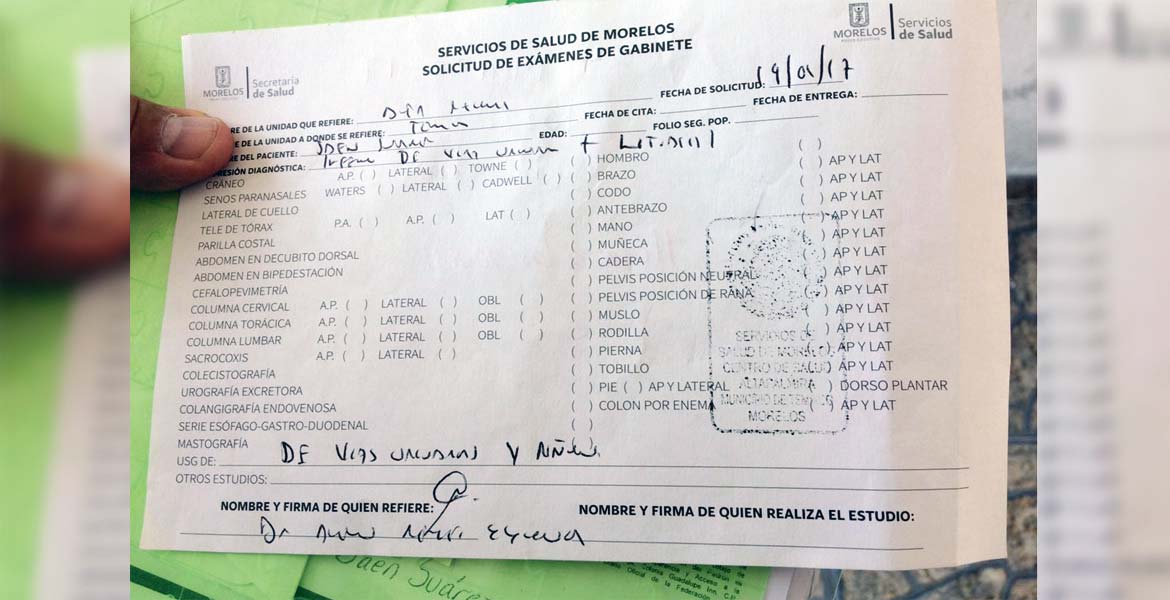 SERVICIOS DE SALUD DE MORELOS
SOLICITUD DE EXÁMENES DE GABINETE
MORELOS
Secretaría de Salud
MORELOS
PODER EJECUTIVO
Servicios de Salud
FECHA DE SOLICITUD: 19/01/17
RE DE LA UNIDAD QUE REFIERE:
FECHA DE CITA:
FECHA DE ENTREGA:
E DE LA UNIDAD A DONDE SE REFIERE:
E DEL PACIENTE:
EDAD:
FOLIO SEG. POP.
RESIÓN DIAGNÓSTICA: DE VIAS
CRÁNEO A.P. ( ) LATERAL ( ) TOWNE ( ) ( ) HOMBRO ( )
SENOS PARANASALES WATERS ( ) LATERAL ( ) CADWELL ( ) ( ) BRAZO ( ) AP Y LAT
LATERAL DE CUELLO ( ) CODO ( ) AP Y LAT
TELE DE TÓRAX P.A. ( ) A.P. ( ) LAT ( ) ( ) ANTEBRAZO ( ) AP Y LAT
PARILLA COSTAL ( ) MANO ( ) AP Y LAT
ABDOMEN EN DECUBITO DORSAL ( ) MUÑECA ( ) AP Y LAT
ABDOMEN EN BIPEDESTACIÓN ( ) CADERA ( ) AP Y LAT
CEFALOPEVIMETRÍA ( ) PELVIS POSICIÓN NEUTRAL ( ) AP Y LAT
COLUMNA CERVICAL A.P. ( ) LATERAL ( ) OBL ( ) ( ) PELVIS POSICIÓN DE RANA ( ) AP Y LAT
COLUMNA TORÁCICA A.P. ( ) LATERAL ( ) OBL ( ) ( ) MUSLO ( ) AP Y LAT
COLUMNA LUMBAR A.P. ( ) LATERAL ( ) OBL ( ) ( ) RODILLA ( ) AP Y LAT
SACROCOXIS A.P. ( ) LATERAL ( ) ( ) PIERNA ( ) AP Y LAT
COLECISTOGRAFÍA ( ) TOBILLO ( ) AP Y LAT
UROGRAFÍA EXCRETORA ( ) PIE ( ) AP Y LATERAL ( ) DORSO PLANTAR
COLANGIGRAFÍA ENDOVENOSA ( ) COLON POR ENEMA ( ) AP Y LAT
SERIE ESÓFAGO-GASTRO-DUODENAL ( )
MASTOGRAFÍA
SERVICIOS DE
SALUD DE MORELOS
CENTRO DE SALUD
ALTAPALMIRA
MUNICIPIO DE TEMIXCO
MORELOS
USG DE: DE VIAS URINARIAS Y RIÑON
OTROS ESTUDIOS:
NOMBRE Y FIRMA DE QUIEN REFIERE:
NOMBRE Y FIRMA DE QUIEN REALIZA EL ESTUDIO:
Dr
Jaen Suárez